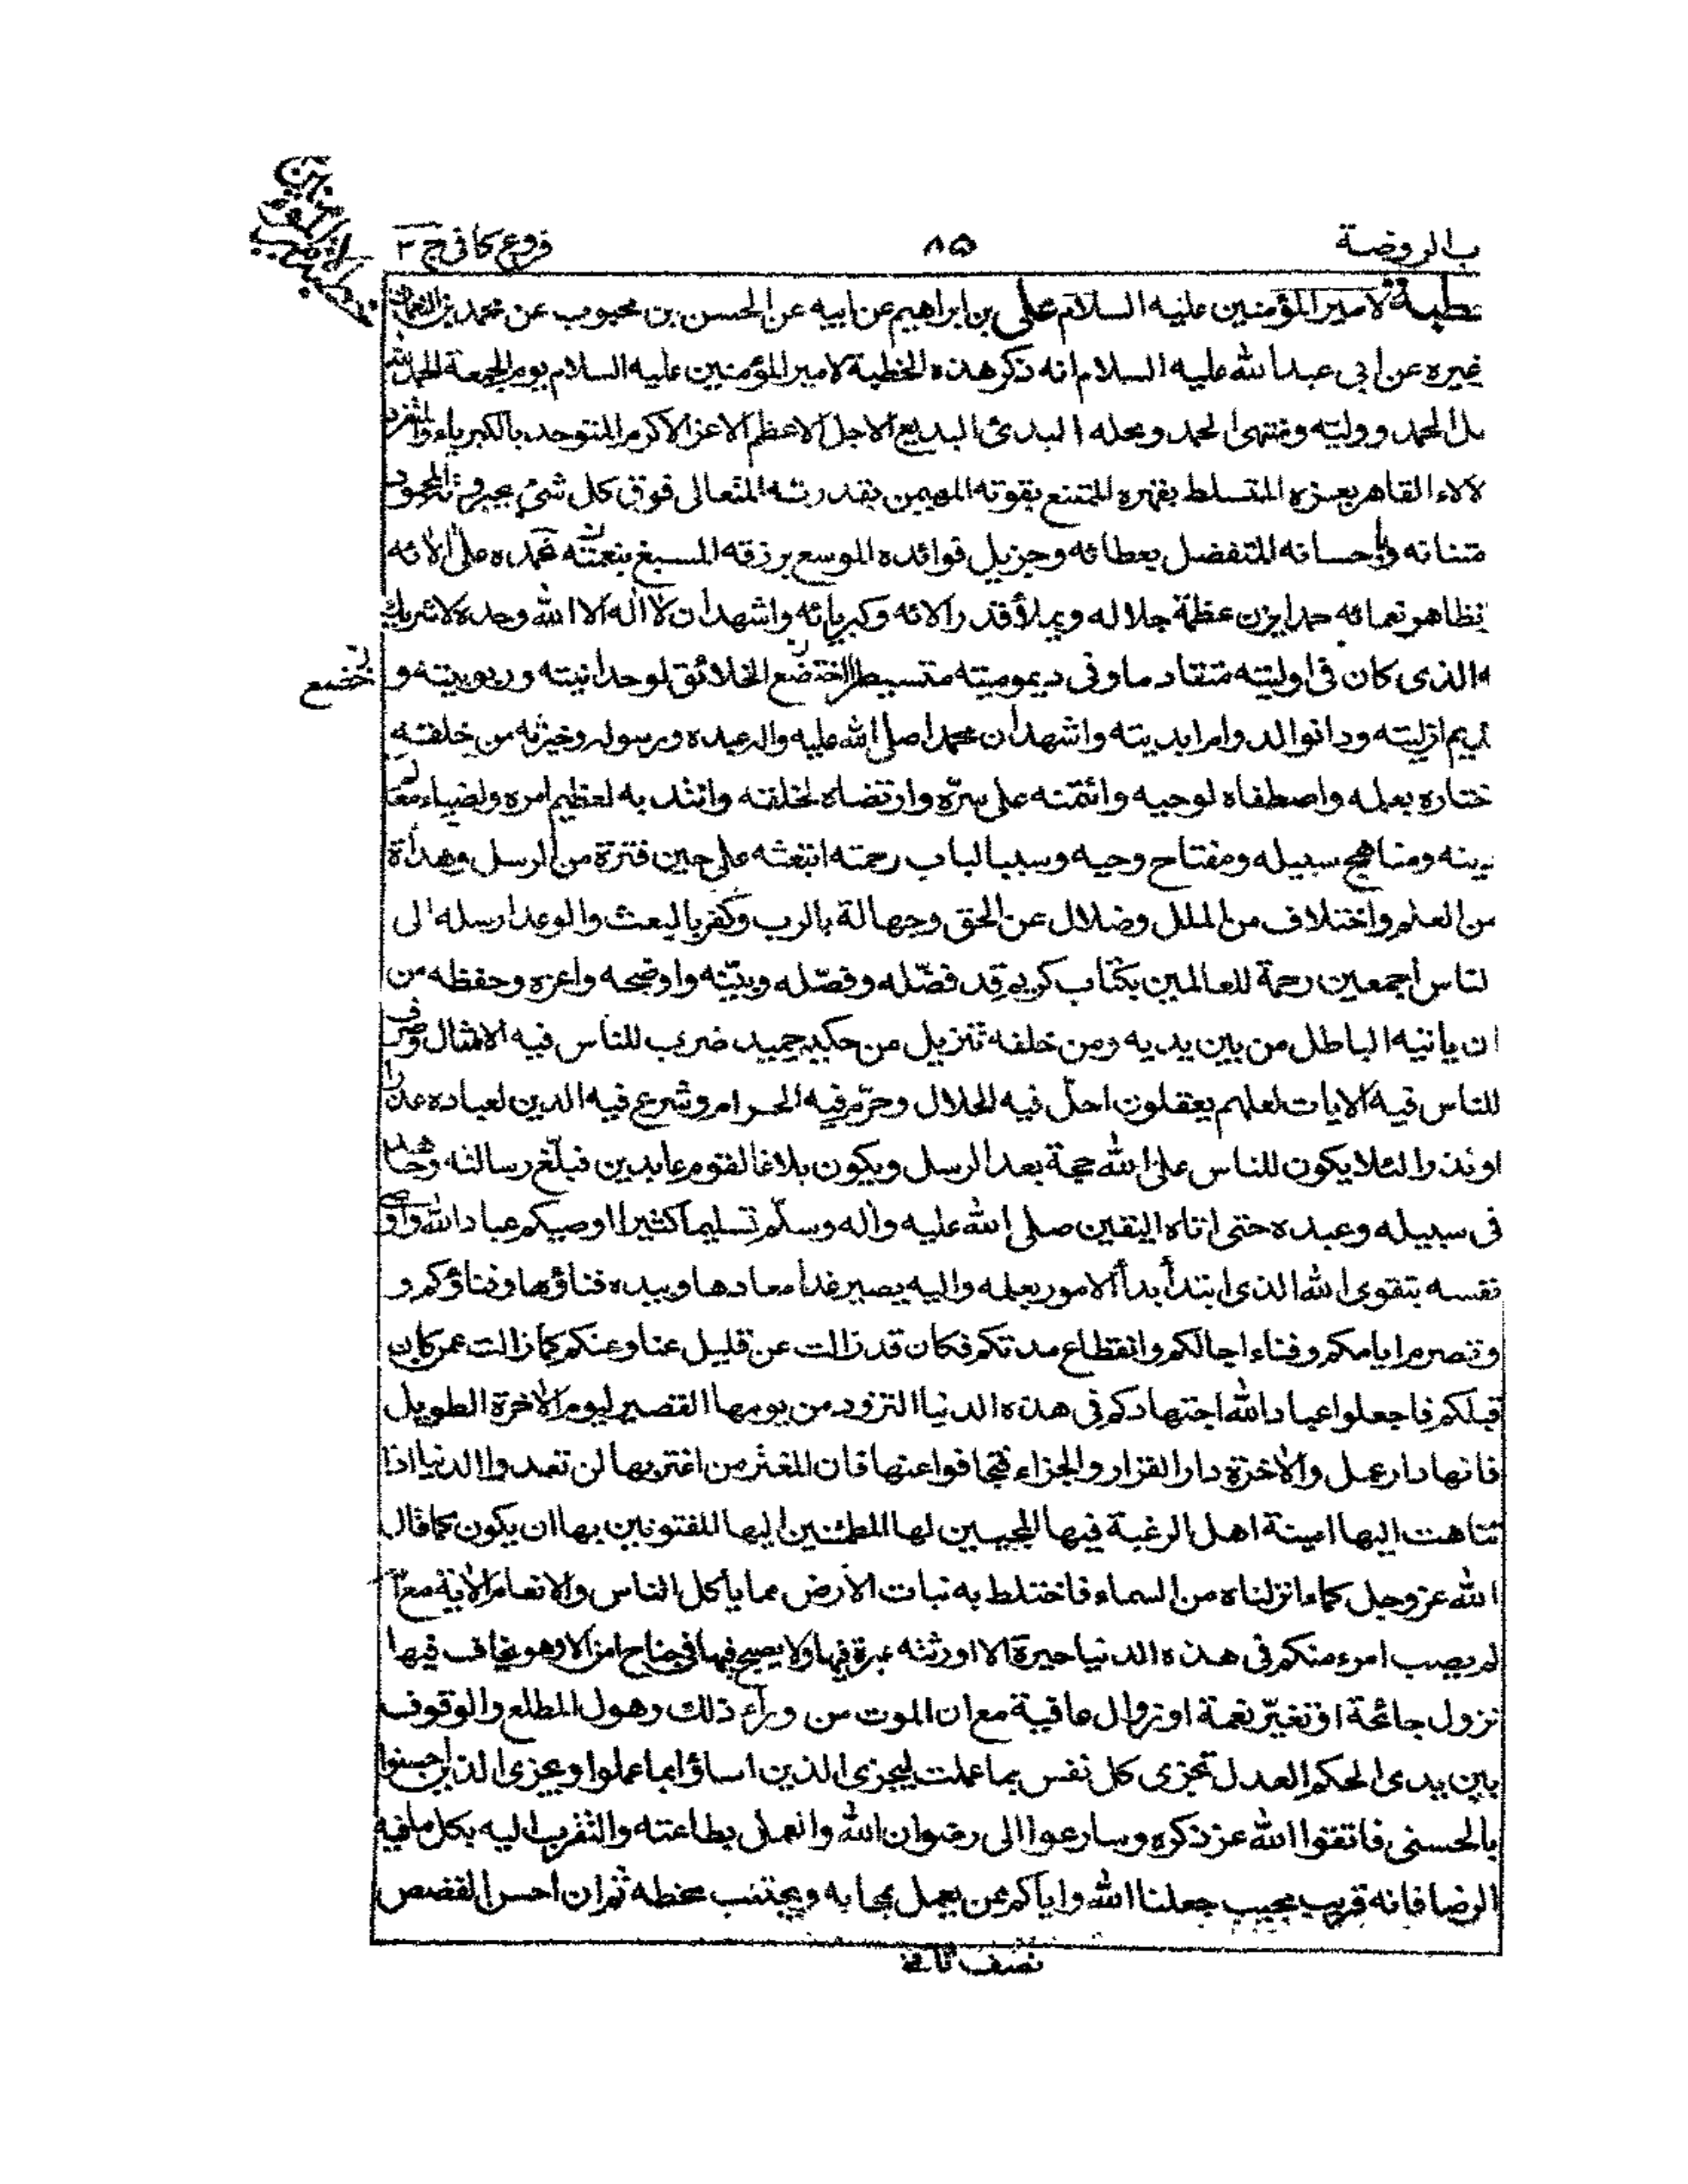 ب الروضة
٨٥
فروع كافى ج ٣
خطبة لامير المؤمنين عليه السلام على بن ابراهيم عن ابيه عن الحسن بن محبوب عن محمد بن النعمان
غيره عن ابى عبد الله عليه السلام انه ذكر هذه الخطبة لامير المؤمنين عليه السلام يوم الجمعة الحمد لله
هل الحمد ووليه ومنتهى الحمد ومحله البدئ البديع الاجل الاعظم الاعز الاكرم المتوحد بالكبرياء والمتفرد
لالاء القاهر بعزه المتسلط بقهره الممتنع بقوته المهيمن بقدرته المتعالى فوق كل شئ بجبروته المحمود
متنانه وباحسانه المتفضل بعطائه وجزيل فوائده الموسع برزقه المسبغ بنعمته نحمده على الائه
تظاهر نعمائه حمدا يزن عظمة جلاله ويملأ قدر الائه وكبريائه واشهد ان لا اله الا الله وحده لا شريك
ه الذى كان فى اوليته متقادما وفى ديموميته متسيطرا خضع الخلائق لوحدانيته وربوبيته و
فخضع
ديم ازليته ودانوا لدوام ابديته واشهد ان محمدا صلى الله عليه واله عبده ورسوله وخيرته من خلقه
ختاره بعلمه واصطفاه لوحيه وائتمنه على سره وارتضاه لخلقه وانتدبه لعظيم امره ولضياء معالم
دينه ومناهج سبيله ومفتاح وحيه وسببا لباب رحمته ابتعثه على حين فترة من الرسل وهدأة
من العلم واختلاف من الملل وضلال عن الحق وجهالة بالرب وكفر بالبعث والوعد ارسله الى
لناس أجمعين رحمة للعالمين بكتاب كريم قد فضّله وفصّله وبيّنه واوضحه واعزه وحفظه من
ان ياتيه الباطل من بين يديه ومن خلفه تنزيل من حكيم حميد ضرب للناس فيه الامثال وصرف
للناس فيه الايات لعلهم يعقلون احلّ فيه الحلال وحرّم فيه الحرام وشرع فيه الدين لعباده عذرا
او نذرا لئلا يكون للناس على الله حجة بعد الرسل ويكون بلاغا لقوم عابدين فبلّغ رسالته وجاهد
فى سبيله وعبده حتى اتاه اليقين صلى الله عليه واله وسلّم تسليما كثيرا اوصيكم عباد الله واوصى
نفسه بتقوى الله الذى ابتدأ بدأ الامور بعلمه واليه يصير غدا معادها وبيده فناؤها وفناؤكم و
وتصرم ايامكم وفناء اجالكم وانقطاع مدتكم فكان قد زالت عن قليل عنا وعنكم كما زالت عمن كان
قبلكم فاجعلوا عباد الله اجتهادكم فى هذه الدنيا التزود من يومها القصير ليوم الاخرة الطويل
فانها دار عمل والاخرة دار القرار والجزاء فتجافوا عنها فان المغتر من اغتر بها لن تعدوا الدنيا اذا
تناهت اليها امينة اهل الرغبة فيها المحبين لها المطمئنين اليها المفتونين بها ان يكون كما قال
الله عز وجل كماء انزلناه من السماء فاختلط به نبات الارض مما يأكل الناس والانعام الاية مع انه
لم يصب امرء منكم فى هذه الدنيا حبرة الا اورثته عبرة فيها ولا يصبح فيها فى جناح امن الا وهو يخاف فيها
نزول جائحة او تغيّر نعمة او زوال عافية مع ان الموت من وراء ذلك وهول المطلع والوقوف
بين يدى الحكم العدل تجزى كل نفس بما عملت ليجزى الذين اساؤا بما عملوا ويجزى الذين احسنوا
بالحسنى فاتقوا الله عز ذكره وسارعوا الى رضوان الله والعمل بطاعته والتقرب اليه بكل ما فيه
الرضا فانه قريب مجيب جعلنا الله واياكم ممن يعمل بمحابه ويجتنب سخطه ثم ان احسن القصص